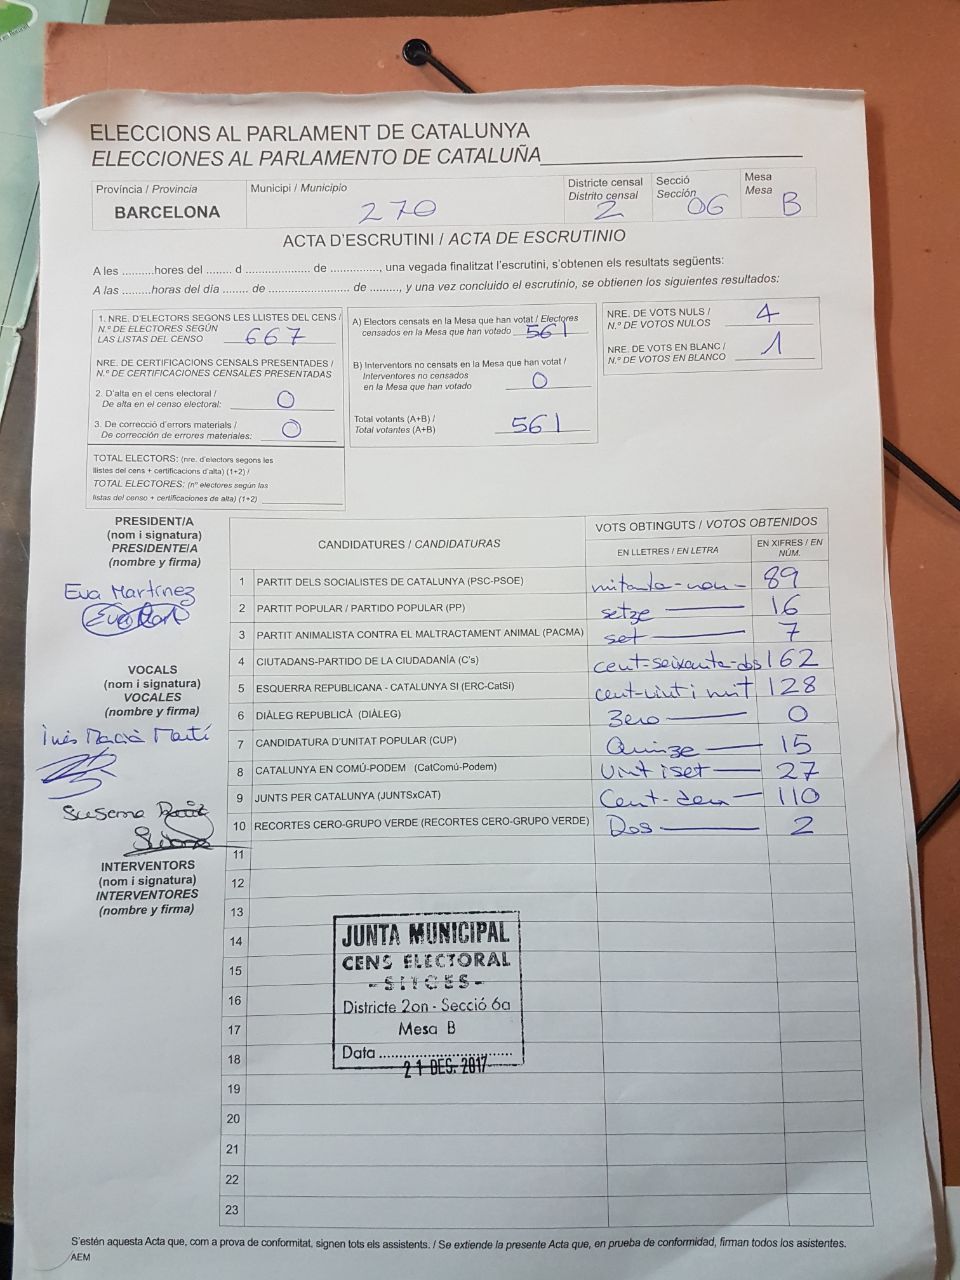 ELECCIONS AL PARLAMENT DE CATALUNYA
ELECCIONES AL PARLAMENTO DE CATALUÑA
Província / Provincia
BARCELONA
Municipi / Municipio
270
Districte censal
Distrito censal
2
Secció
Sección
06
Mesa
Mesa
B
ACTA D'ESCRUTINI / ACTA DE ESCRUTINIO
A les ..........hores del ........ d .................... de ..............., una vegada finalitzat l'escrutini, s'obtenen els resultats següents:
A las .........horas del día ........ de ......................... de ........., y una vez concluido el escrutinio, se obtienen los siguientes resultados:
1. NRE. D'ELECTORS SEGONS LES LLISTES DEL CENS /
N.º DE ELECTORES SEGÚN
LAS LISTAS DEL CENSO 667
NRE. DE CERTIFICACIONS CENSALS PRESENTADES /
N.º DE CERTIFICACIONES CENSALES PRESENTADAS
2. D'alta en el cens electoral /
De alta en el censo electoral: 0
3. De correcció d'errors materials /
De corrección de errores materiales: 0
TOTAL ELECTORS: (nre. d'electors segons les
llistes del cens + certificacions d'alta) (1+2) /
TOTAL ELECTORES: (nº electores según las
listas del censo + certificaciones de alta) (1+2)
A) Electors censats en la Mesa que han votat / Electores
censados en la Mesa que han votado 561
B) Interventors no censats en la Mesa que han votat /
Interventores no censados
en la Mesa que han votado 0
Total votants (A+B) /
Total votantes (A+B) 561
NRE. DE VOTS NULS /
N.º DE VOTOS NULOS 4
NRE. DE VOTS EN BLANC /
N.º DE VOTOS EN BLANCO 1
PRESIDENT/A
(nom i signatura)
PRESIDENTE/A
(nombre y firma)
Eva Martínez
VOCALS
(nom i signatura)
VOCALES
(nombre y firma)
Inés Macià Martí
Susana
INTERVENTORS
(nom i signatura)
INTERVENTORES
(nombre y firma)
CANDIDATURES / CANDIDATURAS
VOTS OBTINGUTS / VOTOS OBTENIDOS
EN LLETRES / EN LETRA
EN XIFRES / EN NÚM.
1 PARTIT DELS SOCIALISTES DE CATALUNYA (PSC-PSOE) 89
2 PARTIT POPULAR / PARTIDO POPULAR (PP) setze 16
3 PARTIT ANIMALISTA CONTRA EL MALTRACTAMENT ANIMAL (PACMA) set 7
4 CIUTADANS-PARTIDO DE LA CIUDADANÍA (C's) cent-seixanta-dos 162
5 ESQUERRA REPUBLICANA - CATALUNYA SI (ERC-CatSí) cent-vint i vuit 128
6 DIÀLEG REPUBLICÀ (DIÀLEG) Zero 0
7 CANDIDATURA D'UNITAT POPULAR (CUP) Quinze 15
8 CATALUNYA EN COMÚ-PODEM (CatComú-Podem) Vint i set 27
9 JUNTS PER CATALUNYA (JUNTSxCAT) Cent-deu 110
10 RECORTES CERO-GRUPO VERDE (RECORTES CERO-GRUPO VERDE) Dos 2
11
12
13
14
15
16
17
18
19
20
21
22
23
JUNTA MUNICIPAL
CENS ELECTORAL
-SITGES-
Districte 2on - Secció 6a
Mesa B
Data ..............................
21 DES. 2017
S'estén aquesta Acta que, com a prova de conformitat, signen tots els assistents. / Se extiende la presente Acta que, en prueba de conformidad, firman todos los asistentes.
AEM